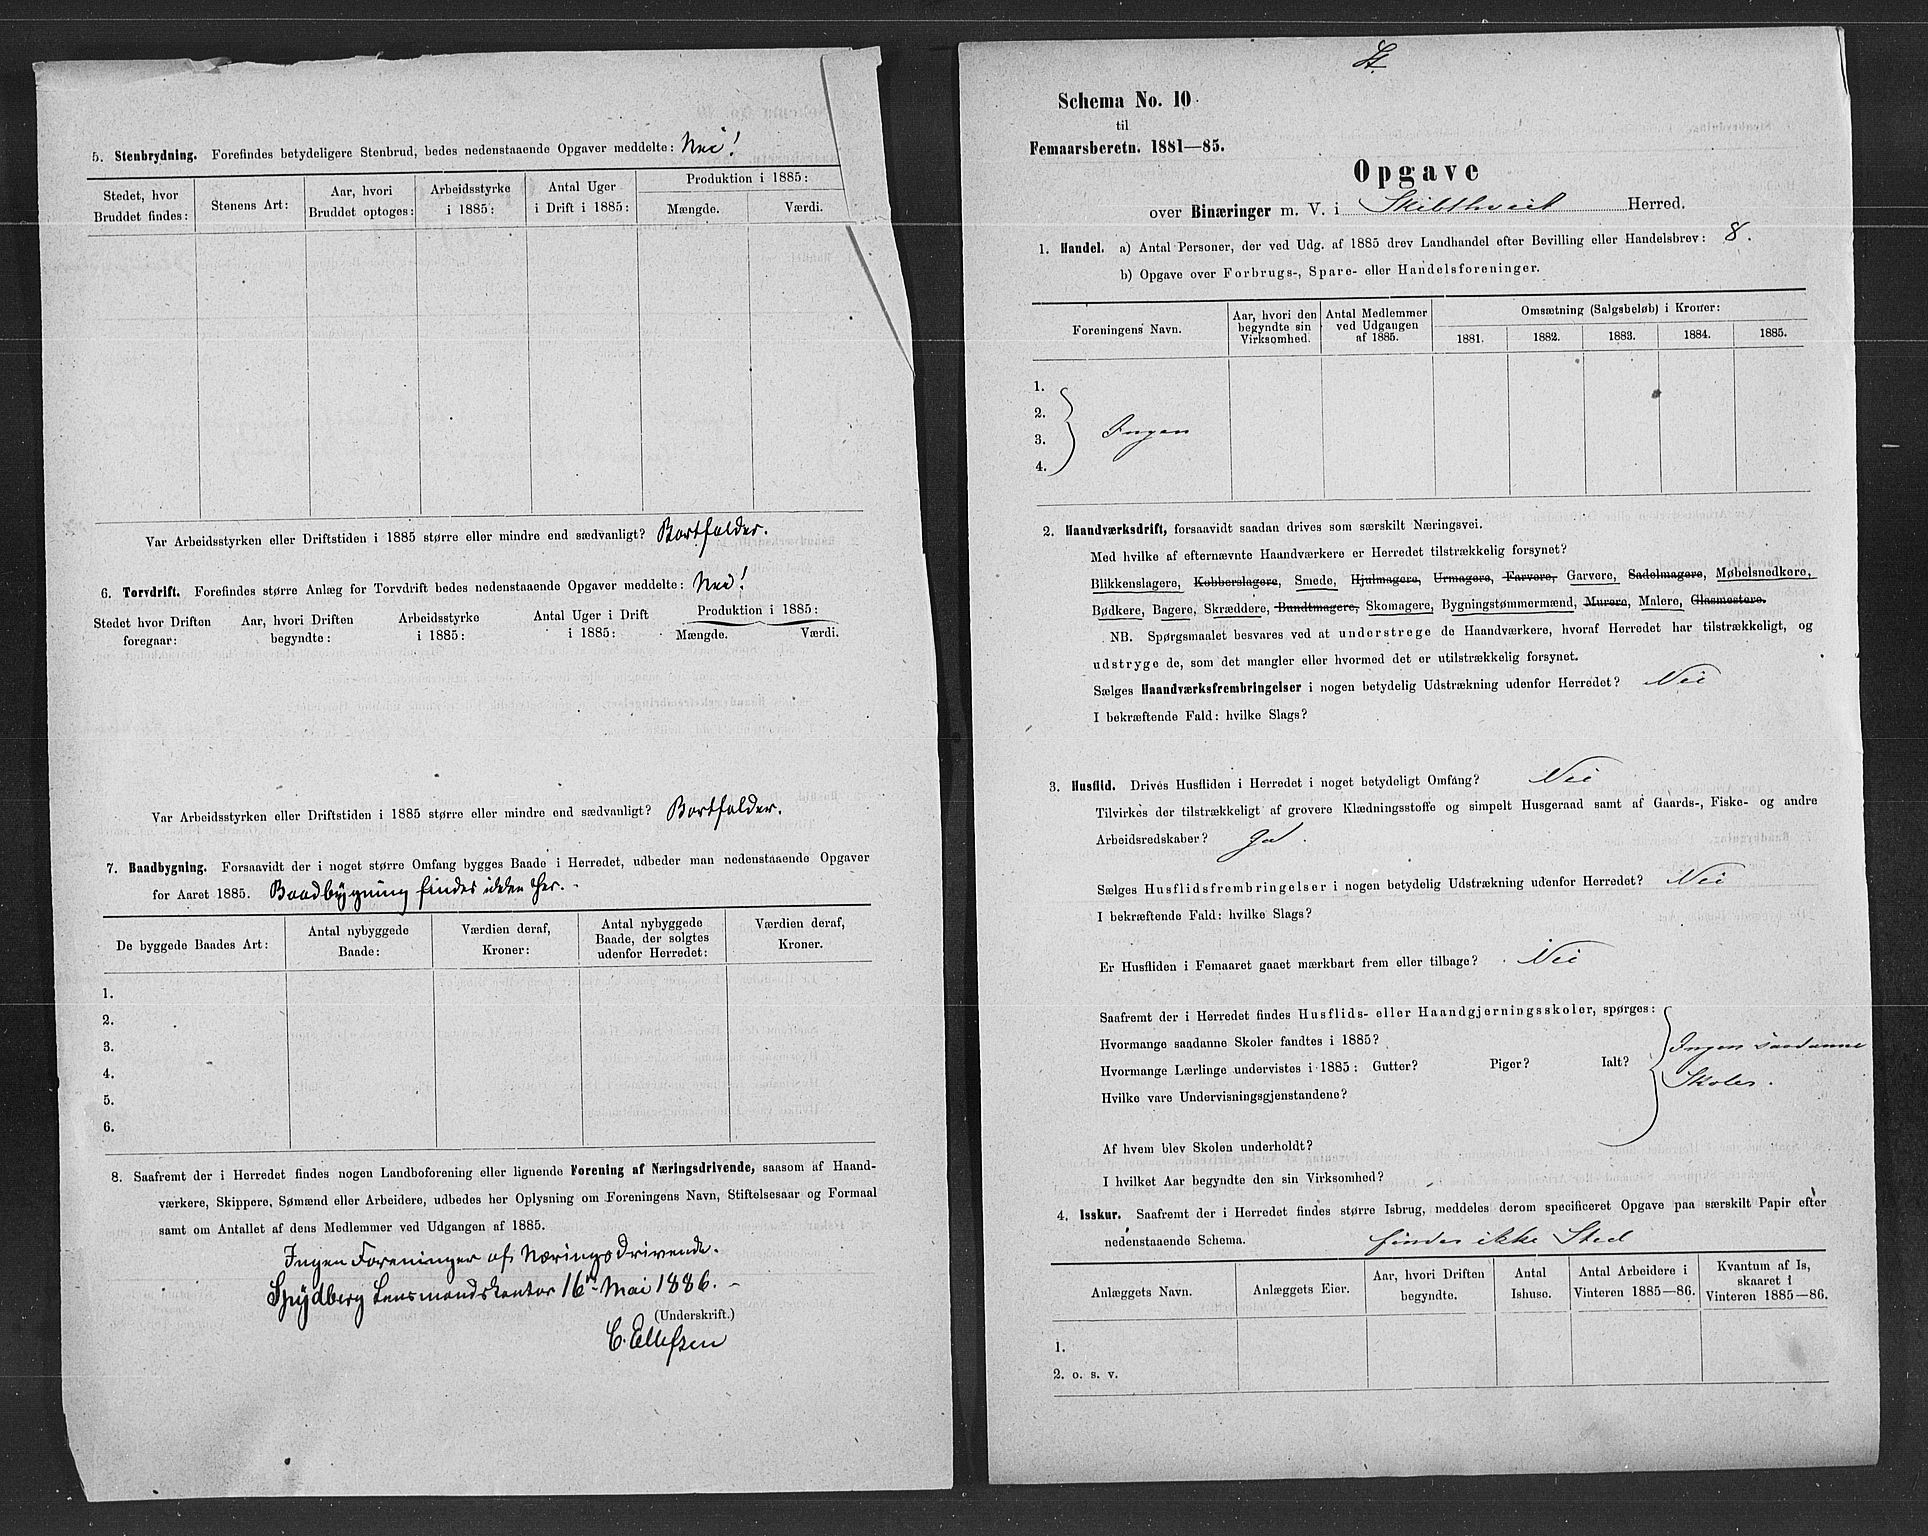 5. Stenbrydning. Forefindes betydeligere Stenbrud, bedes nedenstaaende Opgaver meddelte: Nei!
Stedet, hvor Bruddet findes: Stenens Art: Aar, hvori Bruddet optoges: Arbeidsstyrke i 1885: Antal Uger i Drift i 1885: Produktion i 1885:
Mængde. Værdi.
Var Arbeidsstyrken eller Driftstiden i 1885 større eller mindre end sædvanligt? Bortfalder.
6. Torvdrift. Forefindes større Anlæg for Torvdrift bedes nedenstaaende Opgaver meddelte: Nei!
Stedet hvor Driften foregaar: Aar, hvori Driften begyndte: Arbeidsstyrke i 1885: Antal Uger i Drift i 1885: Produktion i 1885:
Mængde. Værdi.
Var Arbeidsstyrken eller Driftstiden i 1885 større eller mindre end sædvanligt? Bortfalder.
7. Baadbygning. Forsaavidt der i noget større Omfang bygges Baade i Herredet, udbeder man nedenstaaende Opgaver
for Aaret 1885. Baadbygning findes ikke her. -
De byggede Baades Art: Antal nybyggede Baade: Værdien deraf, Kroner: Antal nybyggede Baade, der solgtes udenfor Herredet: Værdien deraf, Kroner.
1.
2.
3.
4.
5.
6.
8. Saafremt der i Herredet findes nogen Landboforening eller lignende Forening af Næringsdrivende, saasom af Haand-
værkere, Skippere, Sømænd eller Arbeidere, udbedes her Oplysning om Foreningens Navn, Stiftelsesaar og Formaal
samt om Antallet af dens Medlemmer ved Udgangen af 1885.
Ingen Foreninger af Næringsdrivende.
Spydberg Lensmandskontor 16de Mai 1886. -
(Underskrift.)
C. Ellefsen
St.
Schema No. 10
til
Femaarsberetn. 1881—85.
Opgave
over Binæringer m. V. i Skibthveit Herred.
1. Handel. a) Antal Personer, der ved Udg. af 1885 drev Landhandel efter Bevilling eller Handelsbrev: 8.
b) Opgave over Forbrugs-, Spare- eller Handelsforeninger.
Foreningens Navn. Aar, hvori den begyndte sin Virksomhed. Antal Medlemmer ved Udgangen af 1885. Omsætning (Salgsbeløb) i Kroner:
1881. 1882. 1883. 1884. 1885.
1.
2.
3. Ingen
4.
2. Haandværksdrift, forsaavidt saadan drives som særskilt Næringsvei.
Med hvilke af efternævnte Haandværkere er Herredet tilstrækkelig forsynet?
Blikkenslagere, Kobberslagere, Smede, Hjulmagere, Urmagere, Farvere, Garvere, Sadelmagere, Møbelsnedkere,
Bødkere, Bagere, Skræddere, Bundtmagere, Skomagere, Bygningstømmermænd, Murere, Malere, Glasmestere.
NB. Spørgsmaalet besvares ved at understrege de Haandværkere, hvoraf Herredet har tilstrækkeligt, og
udstryge de, som det mangler eller hvormed det er utilstrækkelig forsynet.
Sælges Haandværksfrembringelser i nogen betydelig Udstrækning udenfor Herredet? Nei
I bekræftende Fald: hvilke Slags?
3. Husflid. Drives Husfliden i Herredet i noget betydeligt Omfang? Nei
Tilvirkes der tilstrækkeligt af grovere Klædningsstoffe og simpelt Husgeraad samt af Gaards-, Fiske- og andre
Arbeidsredskaber? Ja.
Sælges Husflidsfrembringelser i nogen betydelig Udstrækning udenfor Herredet? Nei
I bekræftende Fald: hvilke Slags?
Er Husfliden i Femaaret gaaet mærkbart frem eller tilbage? Nei
Saafremt der i Herredet findes Husflids- eller Haandgjerningsskoler, spørges:
Hvormange saadanne Skoler fandtes i 1885? Ingen saadanne
Hvormange Lærlinge undervistes i 1885: Gutter? Piger? Ialt? Skoler.
Hvilke vare Undervisningsgjenstandene?
Af hvem blev Skolen underholdt?
I hvilket Aar begyndte den sin Virksomhed?
4. Isskur. Saafremt der i Herredet findes større Isbrug, meddeles derom specificeret Opgave paa særskilt Papir efter
nedenstaaende Schema. finder ikke Sted
Anlæggets Navn. Anlæggets Eier. Aar, hvori Driften begyndte. Antal Ishuse. Antal Arbeidere i Vinteren 1885—86. Kvantum af Is, skaaret i Vinteren 1885—86.
1.
2. o. s. v.